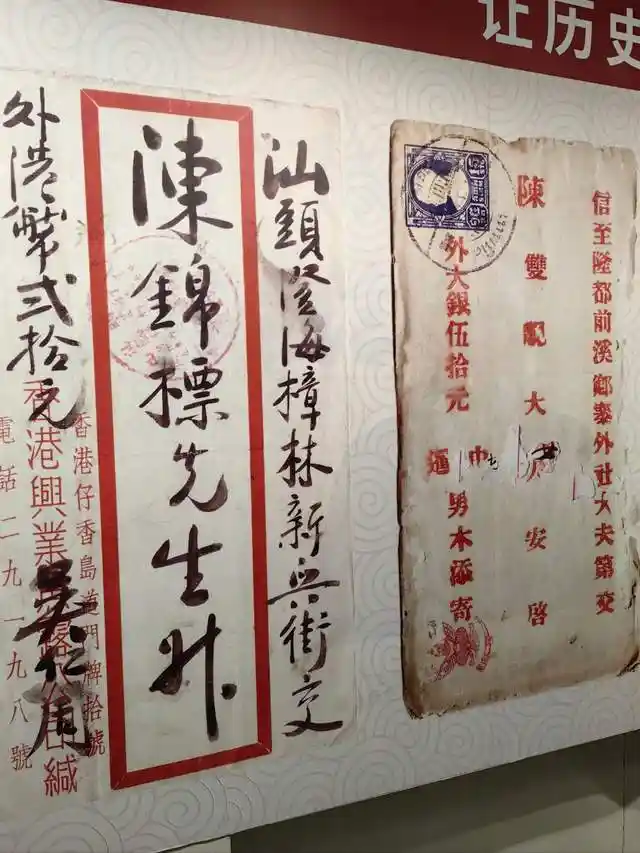 让历史
汕頭澄海樟林新興街交
陳錦標先生升
外港幣弍拾元
香港仔香島道門牌拾號
香港興業 緘
電話二九一九八號
信至隆都前溪鄉寨外社大夫第交
陳雙 大 安啓
外大銀伍拾元
中
暹
男木添寄